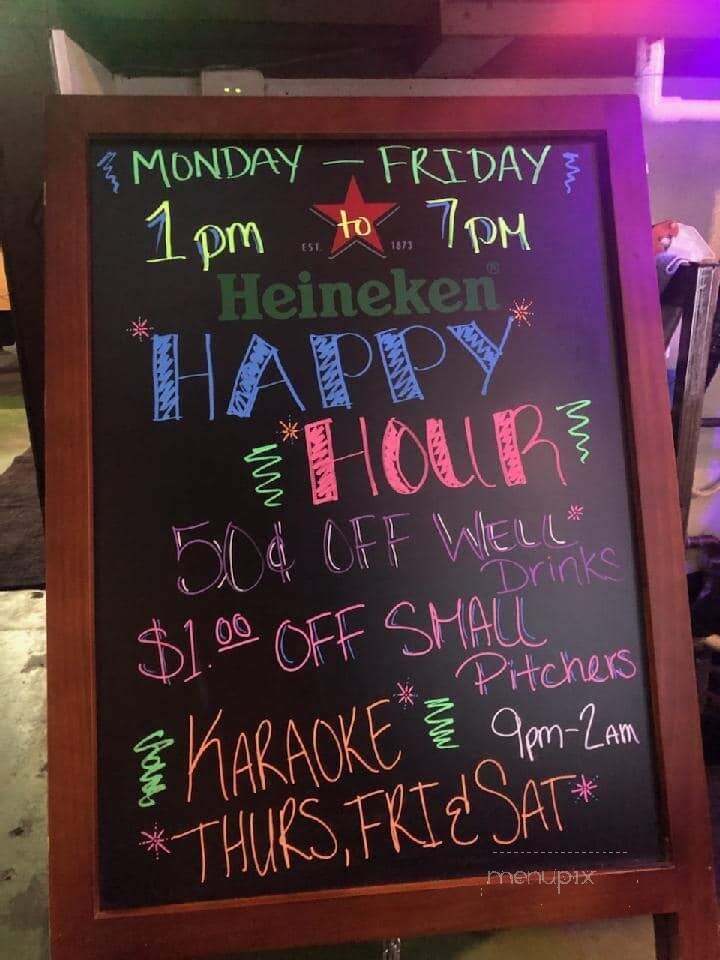 MONDAY – FRIDAY
1pm to 7PM
EST. 1873
Heineken®
HAPPY
HOUR
50¢ OFF WELL
Drinks
$1.00 OFF SMALL
Pitchers
KARAOKE 9pm-2AM
THURS, FRI & SAT
menupix